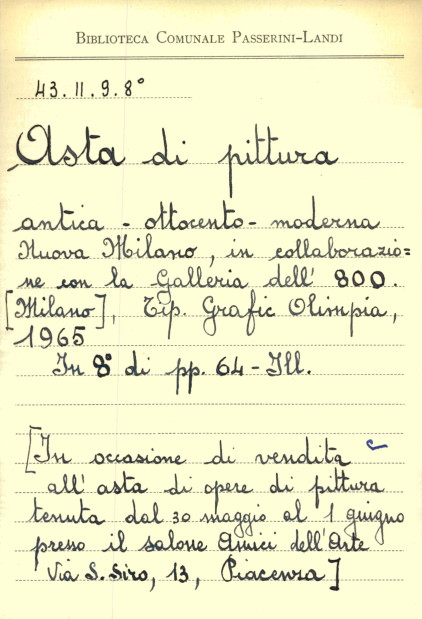 BIBLIOTECA COMUNALE PASSERINI-LANDI
43.11.9.8°
Asta di pittura
antica - ottocento - moderna
Nuova Milano, in collaborazio=
ne con la Galleria dell' 800.
[Milano], Tip. Grafic Olimpia,
1965
In 8° di pp. 64 - Ill.
[In occasione di vendita
all' asta di opere di pittura
tenuta dal 30 maggio al 1 giugno
presso il salone Amici dell'Arte
Via S. Siro, 13, Piacenza]